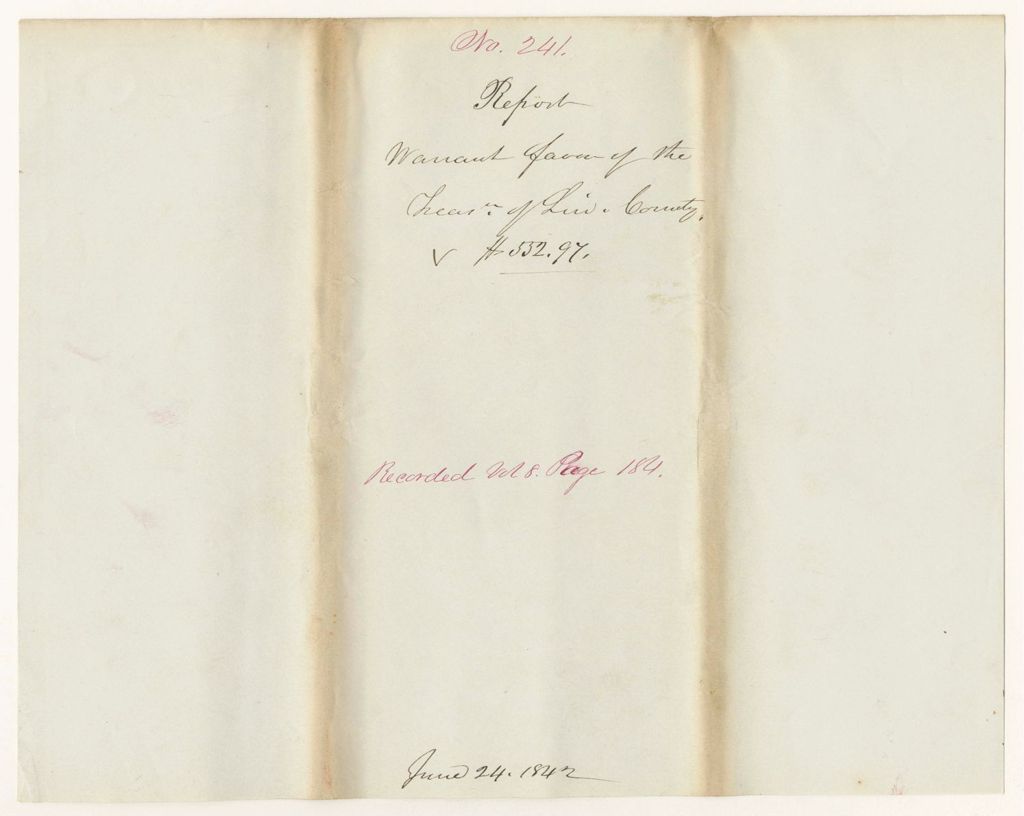 No. 241.
Report
Warrant favor of the
Treasr. of Lin. County.
✓ $332.97.
Recorded Vol 8. Page 184.
June 24. 1842